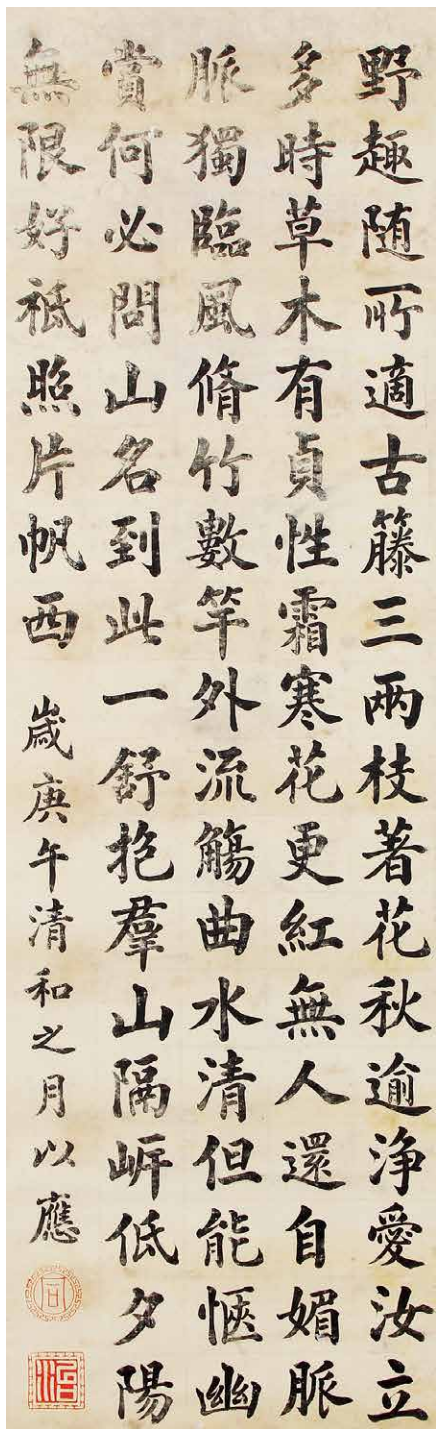 野趣随所適古籐三兩枝著花秋逾浄愛汝立
多時草木有貞性霜寒花更紅無人還自媚脈
脈獨臨風脩竹數竿外流觴曲水清但能愜幽
賞何必問山名到此一舒抱羣山隔岍低夕陽
無限好祗照片帆西 歲庚午清和之月以應
同
治